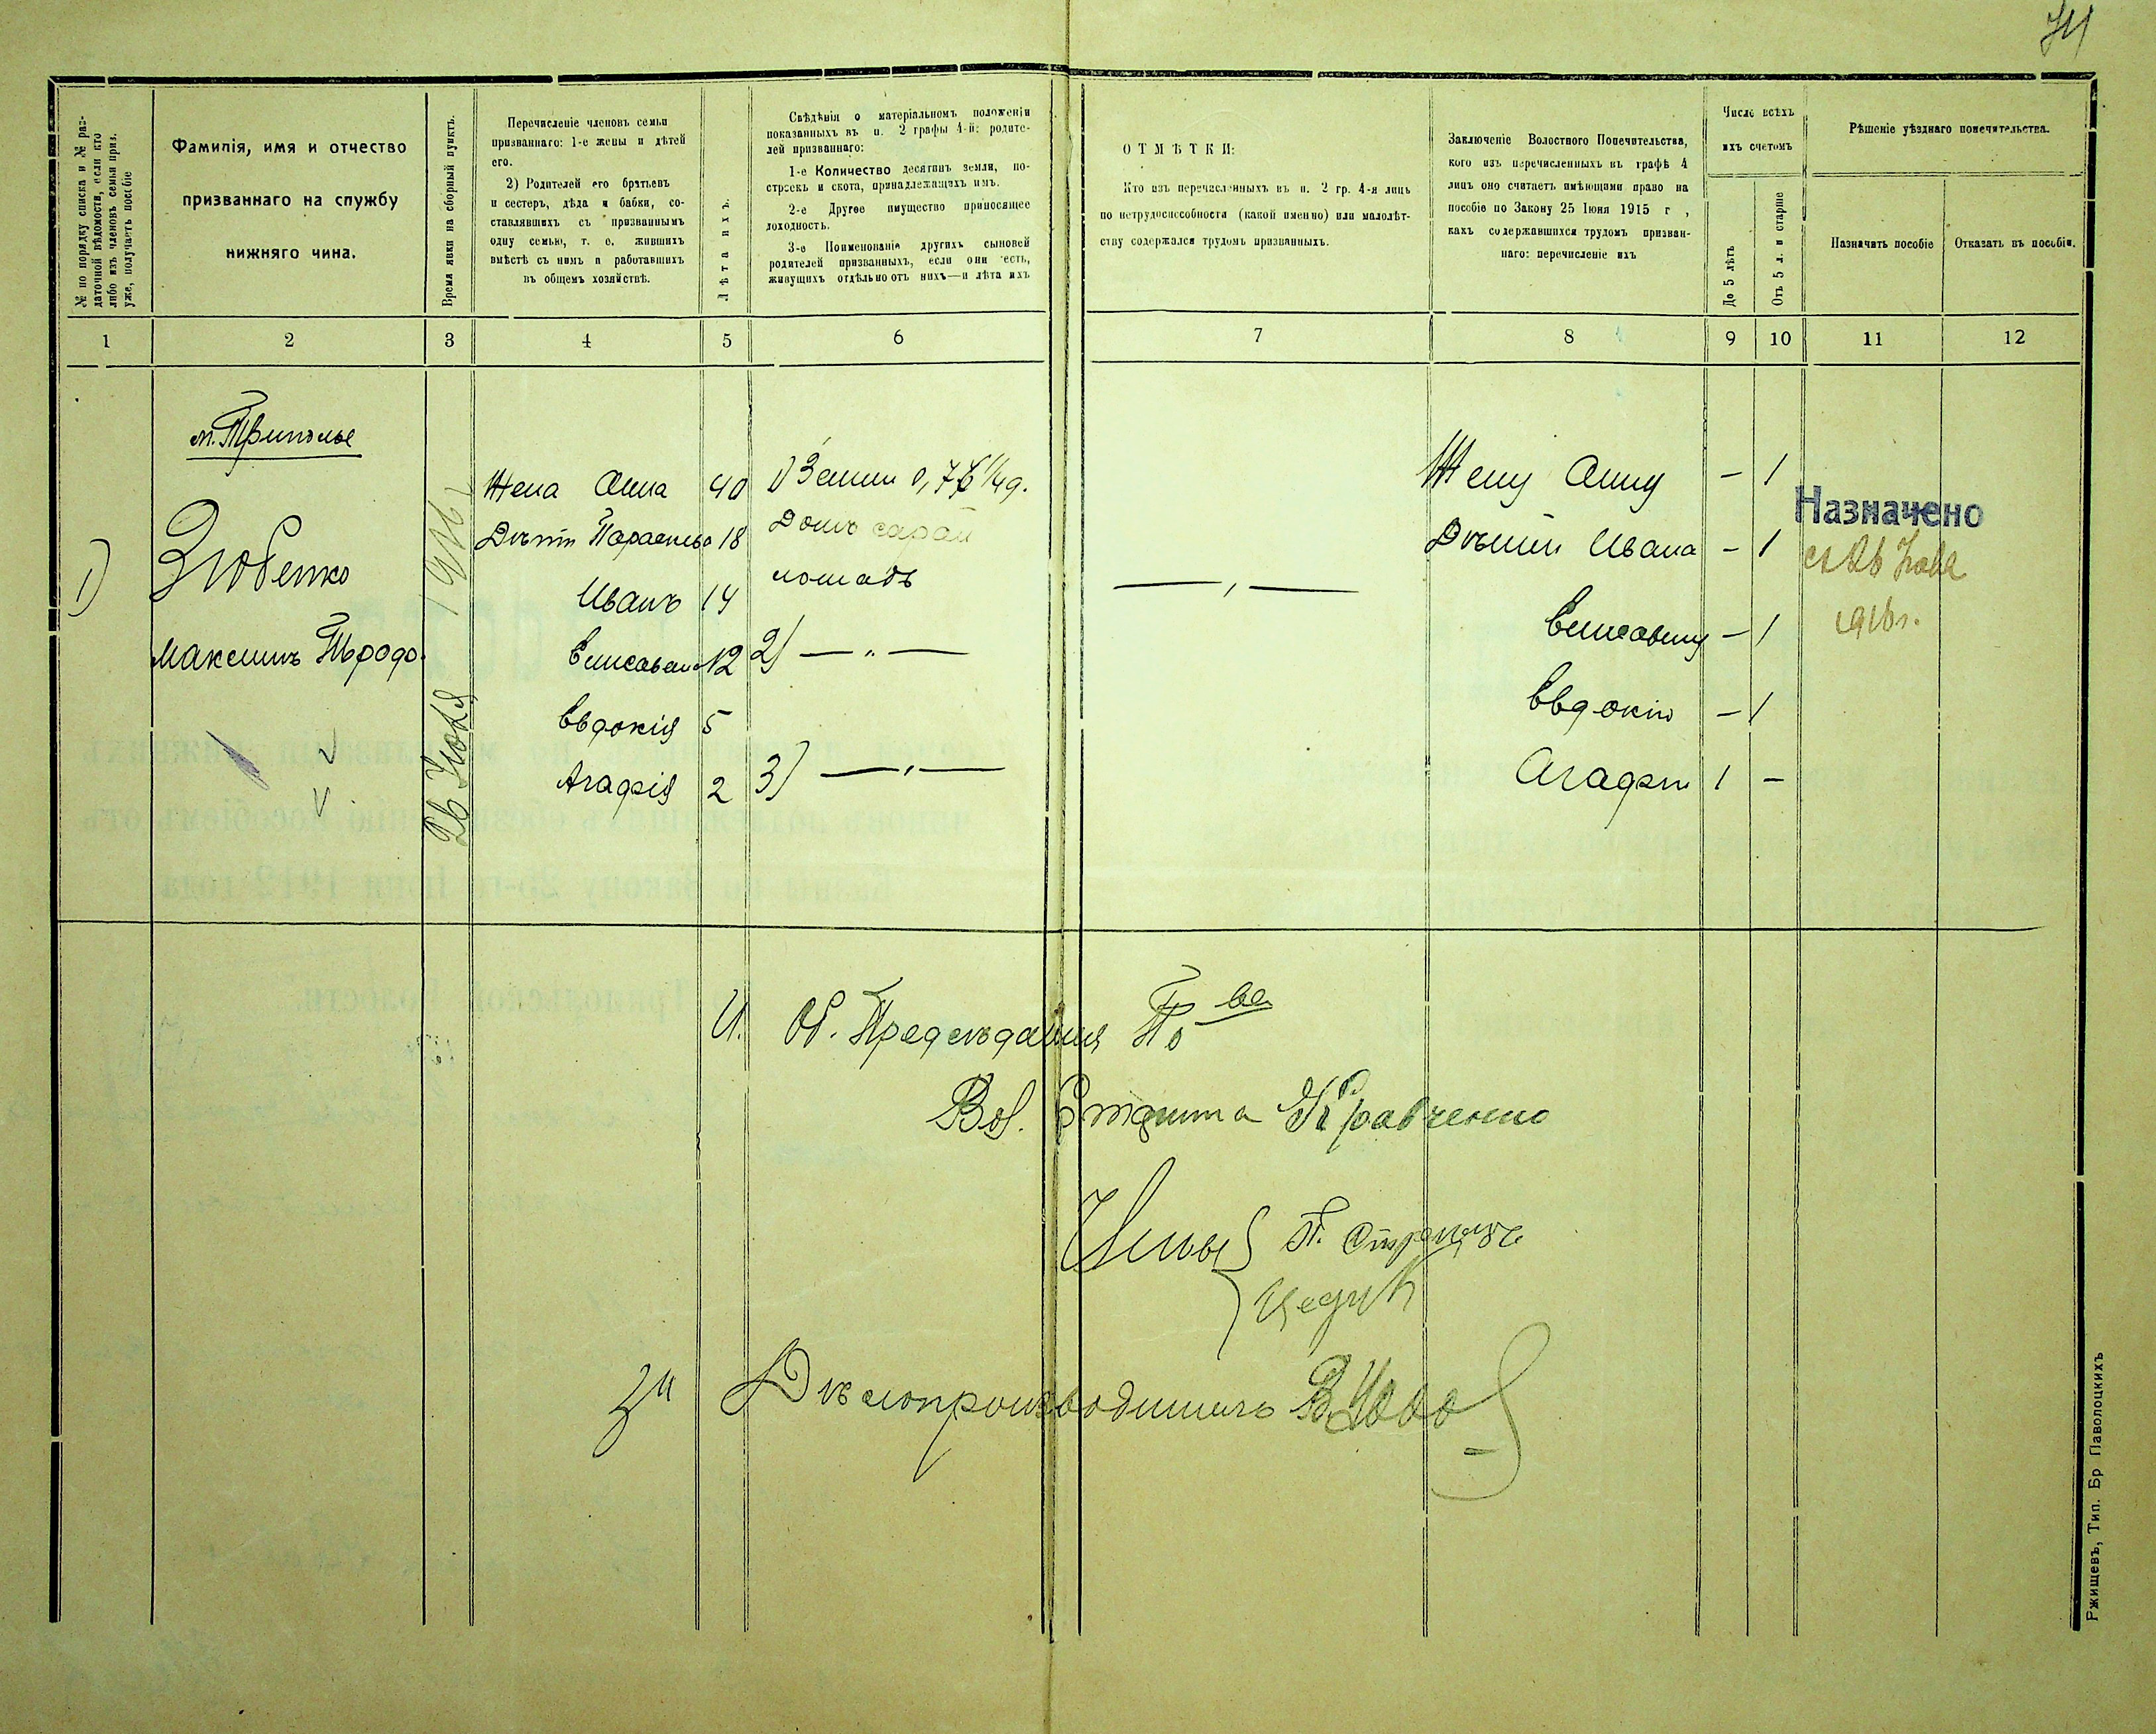 № по порядку списка и № раз-
даточной вѣдомости, если кто
либо изъ членовъ семьи приз.
уже, получаетъ пособіе
Фамилія, имя и отчество
призваннаго на службу
нижняго чина.
Время явки на сборный пунктъ.
Перечисленіе членовъ семьи
призваннаго: 1-е жены и дѣтей
его.
2) Родителей его братьевъ
и сестеръ, дѣда и бабки, со-
ставлявшихъ съ призваннымъ
одну семью, т. е. жившихъ
вмѣстѣ съ нимъ и работавшихъ
въ общемъ хозяйствѣ.
Лѣта ихъ.
Свѣдѣнія о матеріальномъ положеніи
показанныхъ въ п. 2 графы 4-й: родите-
лей призваннаго:
1-е Количество десятинъ земли, по-
строекъ и скота, принадлежащихъ имъ.
2-е Другое имущество приносящее
доходность.
3-е Поименованіе другихъ сыновей
родителей призванныхъ, если они есть,
живущихъ отдѣльно отъ нихъ—и лѣта ихъ
ОТМѢТКИ:
Кто изъ перечисленныхъ въ п. 2 гр. 4-я лицъ
по нетрудоспособности (какой именно) или малолѣт-
ству содержался трудомъ призванныхъ.
Заключеніе Волостного Попечительства,
кого изъ перечисленныхъ въ графѣ 4
лицъ оно считаетъ имѣющими право на
пособіе по Закону 25 Іюня 1915 г ,
какъ содержавшихся трудомъ призван-
наго: перечисленіе ихъ
Число всѣхъ
ихъ счетомъ
До 5 лѣтъ
Отъ 5 л. и старше
Рѣшеніе уѣзднаго попечительства.
Назначить пособіе
Отказать въ пособіи.
1 2 3 4 5 6 7 8 9 10 11 12
м. Триполье
1) Зюбенко
Максимъ
26 1916
Жена Анна 40 1) Земли Жену Анну – 1
Дѣти Параскева 18 Домъ сарай Дѣтей Ивана – 1
Иванъ 14 лошадь —,— Елисавету – 1
Елисавета 12 2) —„— Евдокію – 1
Евдокія 5
Агафія 2 3) —„— Агафію 1 –
Назначено
съ 26
1916 г.
И. Об. Предсѣдателя П-ва
Вол. Старшина Кравченко
Члены П.
За Дѣлопроизводитель
Ржищевъ, Тип. Бр Паволоцкихъ